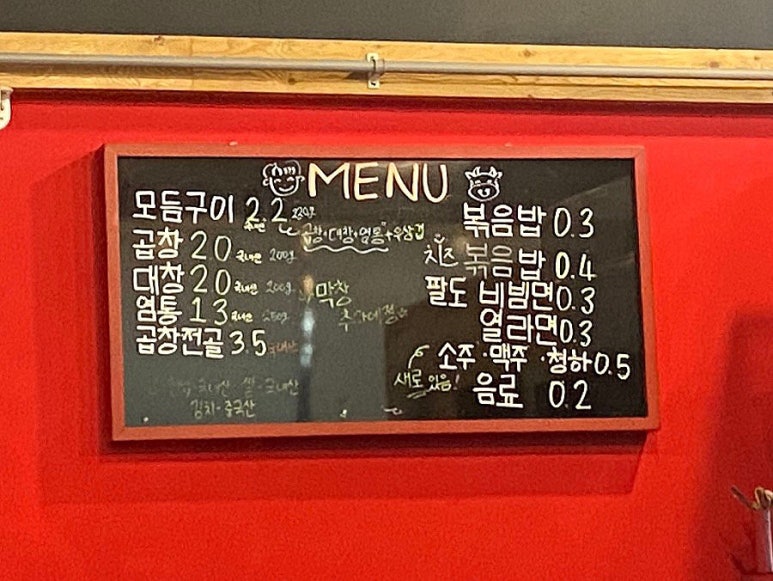 MENU
모듬구이 2.2 230g
국내산
곱창+대창+염통+우삼겹
곱창 2.0 국내산 200g
대창 2.0 국내산 200g
염통 1.3 국내산 250g
곱창전골 3.5 국내산
막창
추가예정
쌀-국내산
김치-중국산
볶음밥 0.3
치즈 볶음밥 0.4
팔도 비빔면 0.3
열라면 0.3
소주·맥주·청하 0.5
새로 있음!
음료 0.2